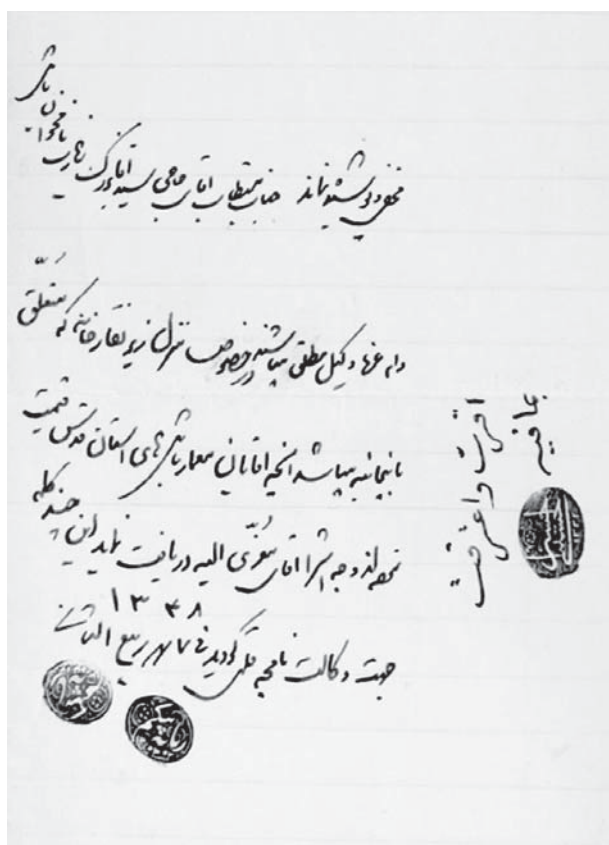 مخفی و پوشیده نماند جناب مستطاب آقای حاجی سید آقا بزرگ باشی
دام عزه وکیل مطلق میباشند در خصوص منزل زیر نقاره خانه که متعلق
باینجانبه میباشد آنچه آقایان معمار باشی های آستان قدس قیمت
وجه آنرا آقای معزی الیه دریافت نماید این چند کلمه
جهت وکالت نامچه قلمی گردید فی ۷ شهر ربیع الثانی ۱۳۴۸
اقرت و اعترفت
بما فیه